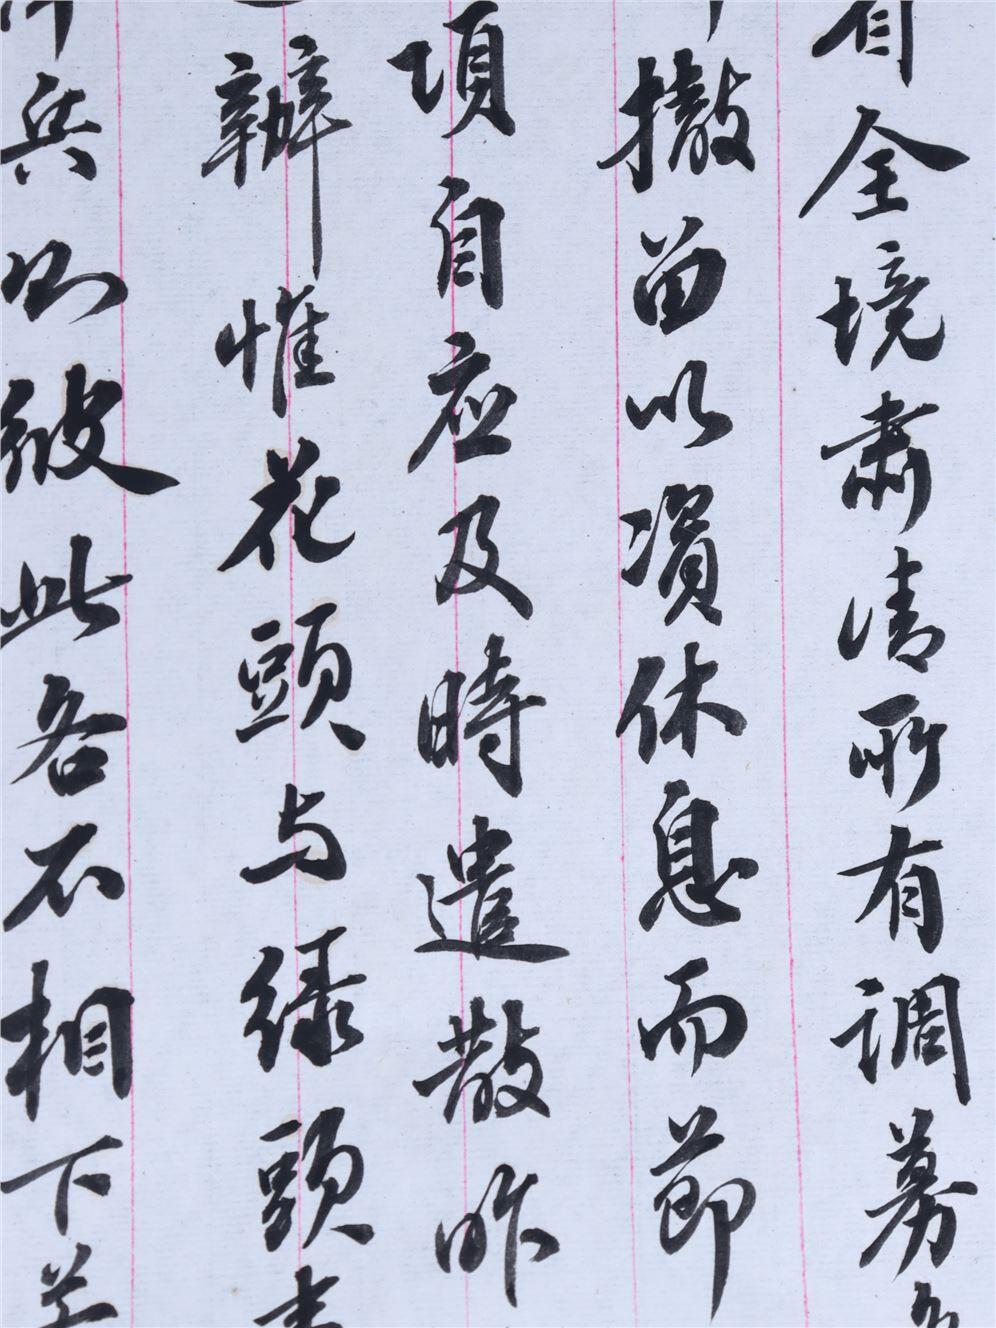 全境肅清所有調募
撤留以資休息而節
項自应及時遣散昨
辦惟花頭与緑頭
兵則彼此各不相下